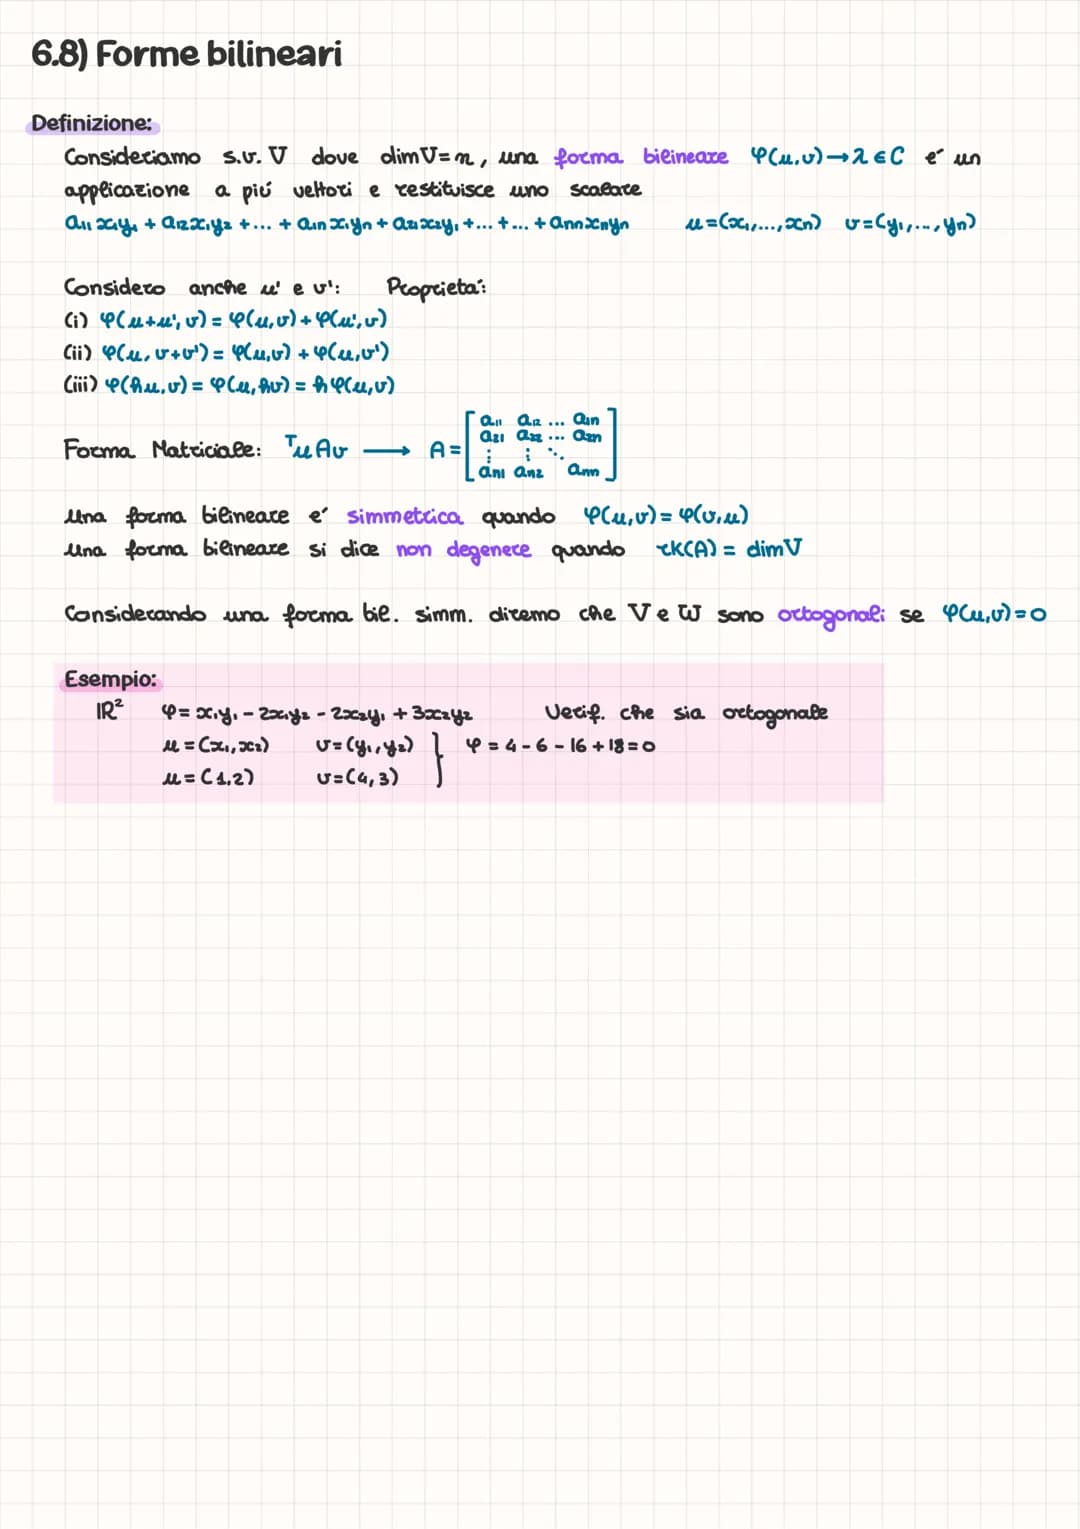 6.8) Forme bilineari
Definizione:
Consideriamo s.v. V dove dim V = n, una forma bilineare φ(u,v)→λ∈C e' un
applicazione a piú vettori e restituisce uno scalare
a₁₁x₁y₁ + a₁₂x₁y₂ + ... + a₁ₙx₁yₙ + a₂₁x₂y₁ + ... + ... + aₙₙxₙyₙ u=(x₁,...,xₙ) v=(y₁,...,yₙ)
Considero anche u' e v': Proprieta':
(i) φ(u+u',v) = φ(u,v) + φ(u',v)
(ii) φ(u, v+v') = φ(u,v) + φ(u,v')
(iii) φ(hu,v) = φ(u,hv) = hφ(u,v)
Forma Matriciale: ᵀuAv ⟶ A = [a₁₁ a₁₂ ... a₁ₙ
a₂₁ a₂₂ ... a₂ₙ
⋮ ⋮ ⋱
aₙ₁ aₙ₂ aₙₙ]
una forma bilineare e' simmetrica quando φ(u,v) = φ(v,u)
una forma bilineare si dice non degenere quando rk(A) = dim V
Considerando una forma bil. simm. diremo che V e W sono ortogonali se φ(u,v)=0
Esempio:
ℝ² φ = x₁y₁ - 2x₁y₂ - 2x₂y₁ + 3x₂y₂ Verif. che sia ortogonale
u = (x₁,x₂) v = (y₁,y₂) } φ = 4 - 6 - 16 + 18 = 0
u = (1,2) v = (4,3)